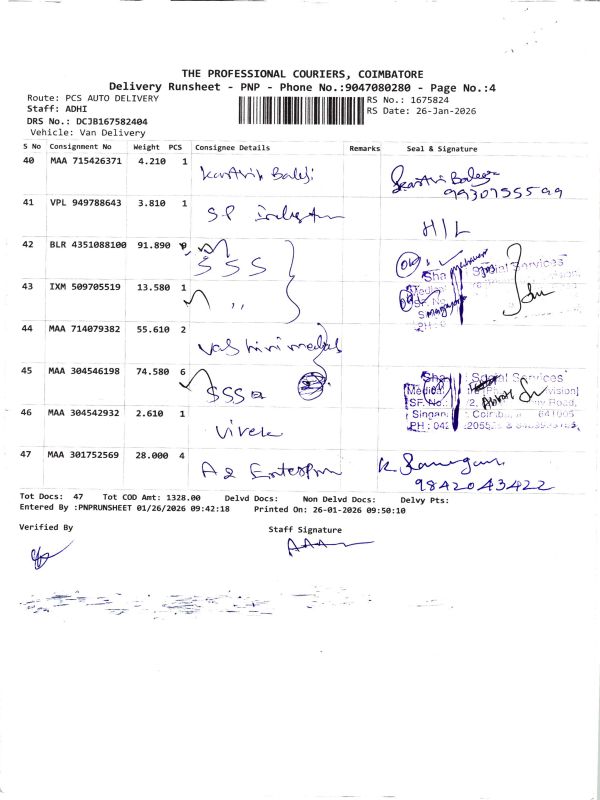 THE PROFESSIONAL COURIERS, COIMBATORE
Delivery Runsheet - PNP - Phone No.:9047080280 - Page No.:4
Route: PCS AUTO DELIVERY
RS No.: 1675824
Staff: ADHI
RS Date: 26-Jan-2026
DRS No.: DCJB167582404
Vehicle: Van Delivery
S No Consignment No Weight PCS Consignee Details Remarks Seal & Signature
40 MAA 715426371 4.210 1 Karthik Balaji
41 VPL 949788643 3.810 1 S.P H/L
42 BLR 4351088100 91.890 SSS
Social Services
43 IXM 509705519 13.580 1 ,,
44 MAA 714079382 55.610 2
45 MAA 304546198 74.580 6 SSS
Social Services
46 MAA 304542932 2.610 1 Vivek
47 MAA 301752569 28.000 4
9842043422
Tot Docs: 47 Tot COD Amt: 1328.00 Delvd Docs: Non Delvd Docs: Delvy Pts:
Entered By :PNPRUNSHEET 01/26/2026 09:42:18 Printed On: 26-01-2026 09:50:10
Verified By Staff Signature